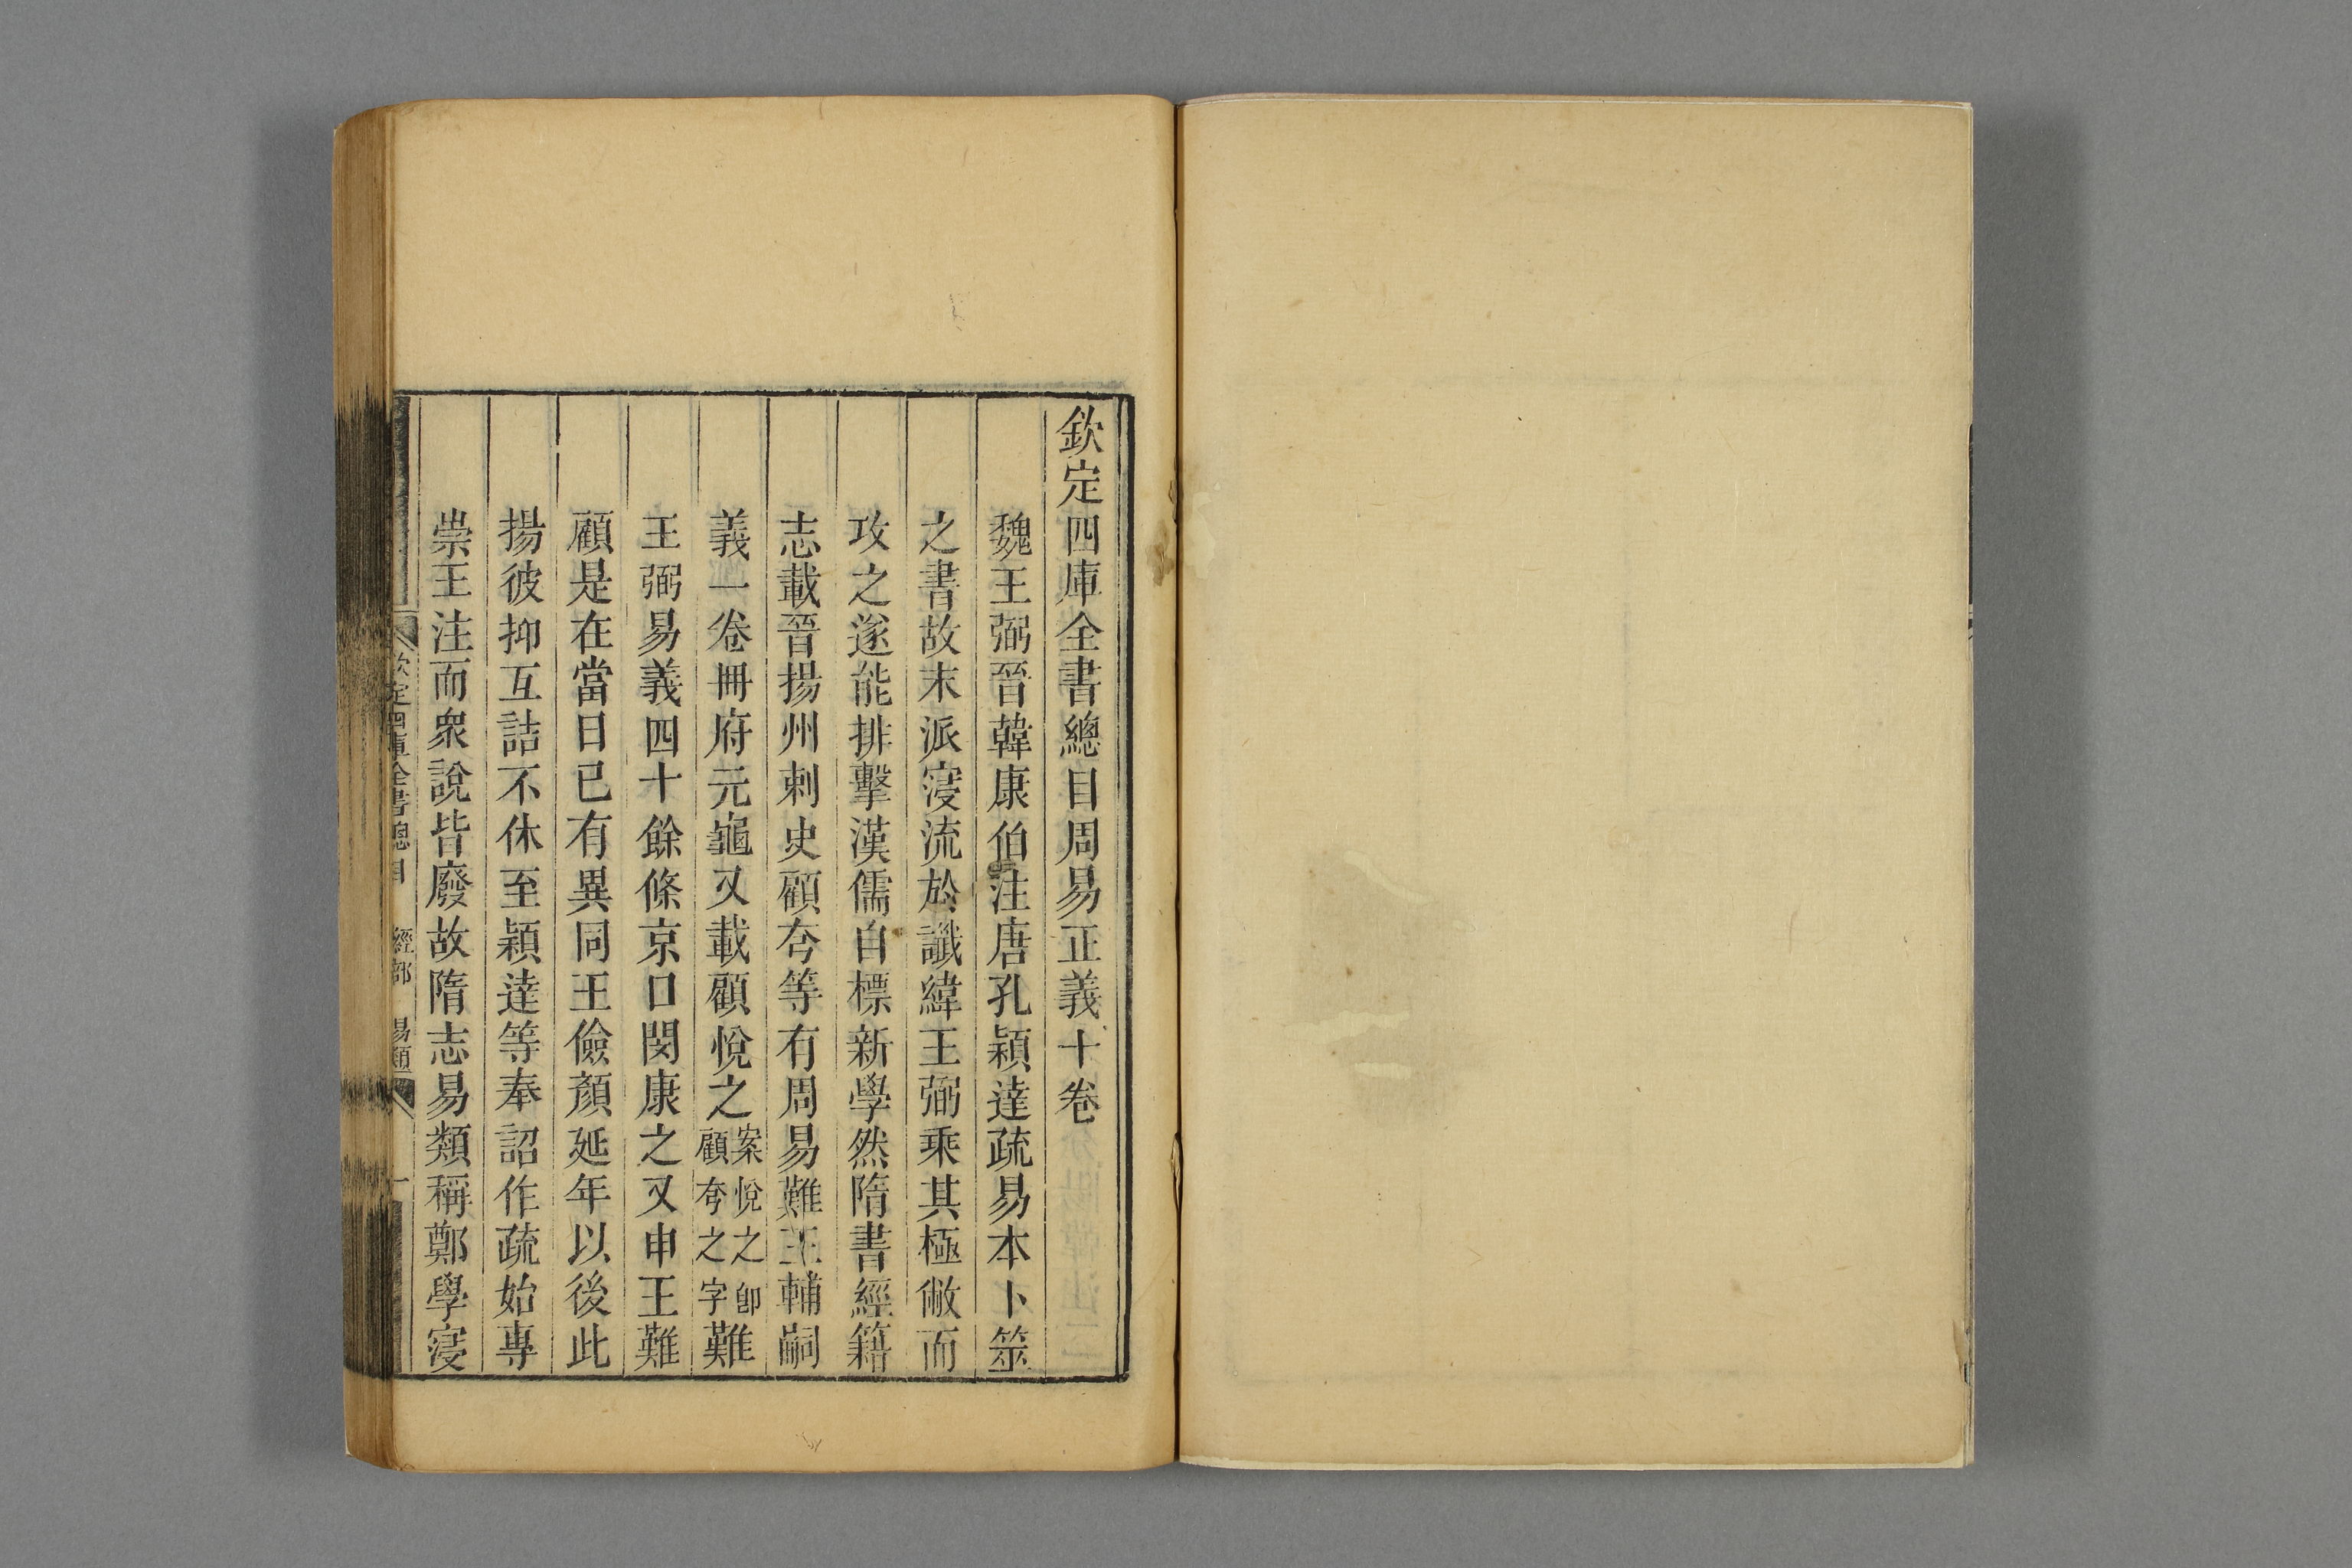 欽定四庫全書總目周易正義十卷
魏王弼晉韓康伯注唐孔穎達疏易本卜筮
之書故末派寖流於讖緯王弼乘其極敝而
攻之遂能排擊漢儒自標新學然隋書經籍
志載晉揚州刺史顧夸等有周易難王輔嗣
義一卷冊府元龜又載顧悅之案悅之卽顧夸之字難
王弼易義四十餘條京口閔康之又申王難
顧是在當日已有異同王儉顏延年以後此
揚彼抑互詰不休至穎達等奉詔作疏始專
崇王注而衆說皆廢故隋志易類稱鄭學寖
欽定四庫全書總目 經部 易類 一